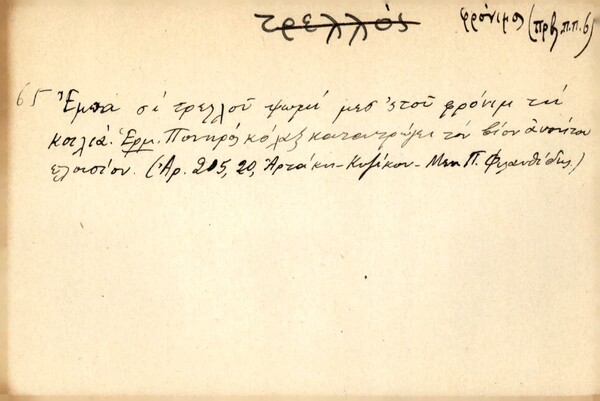 τρελλός φρόνιμος (πρβ. π.π. 6)
65 Ἔμπα σὲ τρελλοῦ ψωμὶ μεσ' 'ς τοῦ φρόνιμ τὴ
κοιλιά. Ἑρμ. Πονηρὸς κόλαξ κατατρώγει τὸν βίον ἀνοήτου
πλουσίου. (Ἀρ. 205, 20, Ἀρτάκη - Κυζίκου - Μεν. Π. Φιλανθίδης)